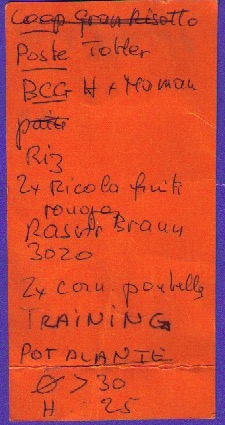 Coop Gran Risotto
Poste Tobler
BCG H + Maman
pain
Riz
2x Ricola fruits
rouges
Rasoir Braun
3020
2x corn. poubelle
TRAINING
POT PLANTE
Ø > 30
H 25